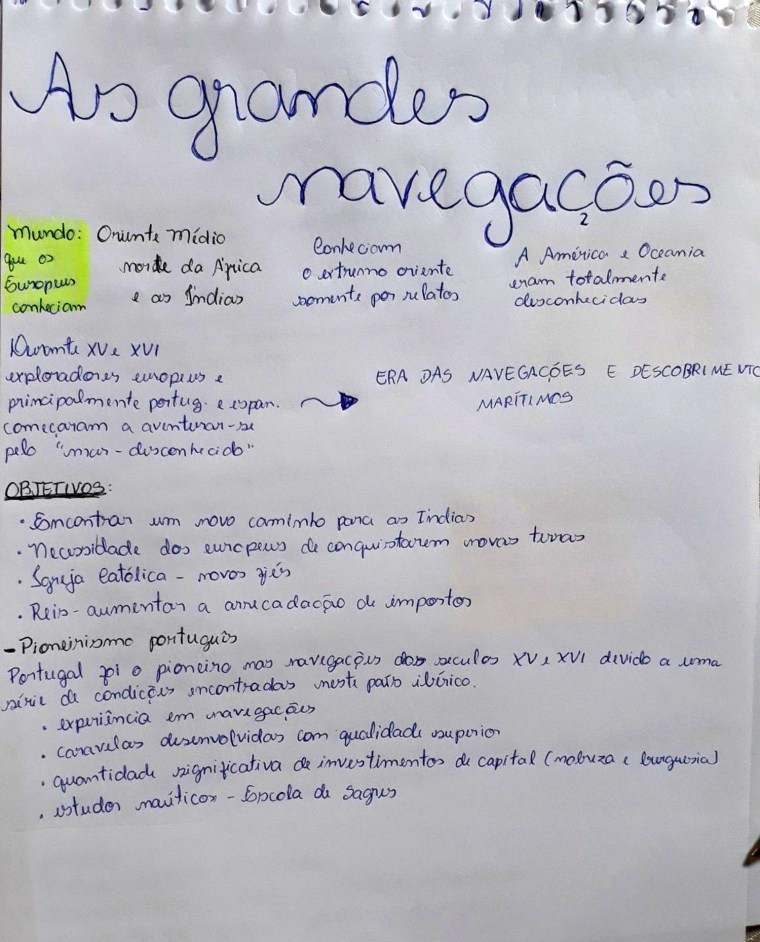 As grandes
navegações
2
Mundo:
que os
Europeus
conheciam
Oriente Médio
norte da África
e as Índias
Conheciam
o extremo oriente
somente por relatos
A América e Oceania
eram totalmente
desconhecidas
Durante XV e XVI
exploradores europeus e
principalmente portug. e espan.
começaram a aventurar-se
pelo "mar-desconhecido"
ERA DAS NAVEGAÇÕES E DESCOBRIMENTO
MARÍTIMOS
OBJETIVOS:
• Encontrar um novo caminho para as Índias
• Necessidade dos europeus de conquistarem novas terras
• Igreja Católica - novos fiéis
• Reis - aumentar a arrecadação de impostos
- Pioneirismo português
Portugal foi o pioneiro nas navegações dos seculos XV e XVI devido a uma
série de condições encontradas neste país ibérico.
• experiência em navegações
• caravelas desenvolvidas com qualidade superior
• quantidade significativa de investimentos de capital (nobreza e burguesia)
• estudos naúticos - Escola de Sagres